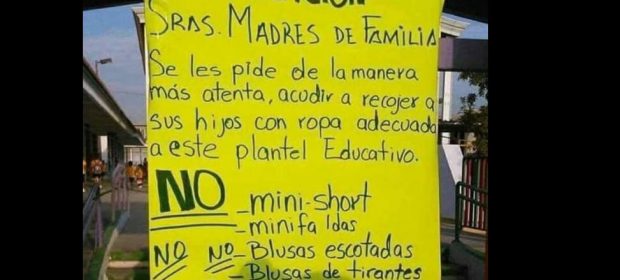 SRAS. MADRES DE FAMILIA
Se les pide de la manera
más atenta, acudir a recojer a
sus hijos con ropa adecuada
a este plantel Educativo.
NO _mini-short
_minifaldas
NO NO _Blusas escotadas
_Blusas de tirantes